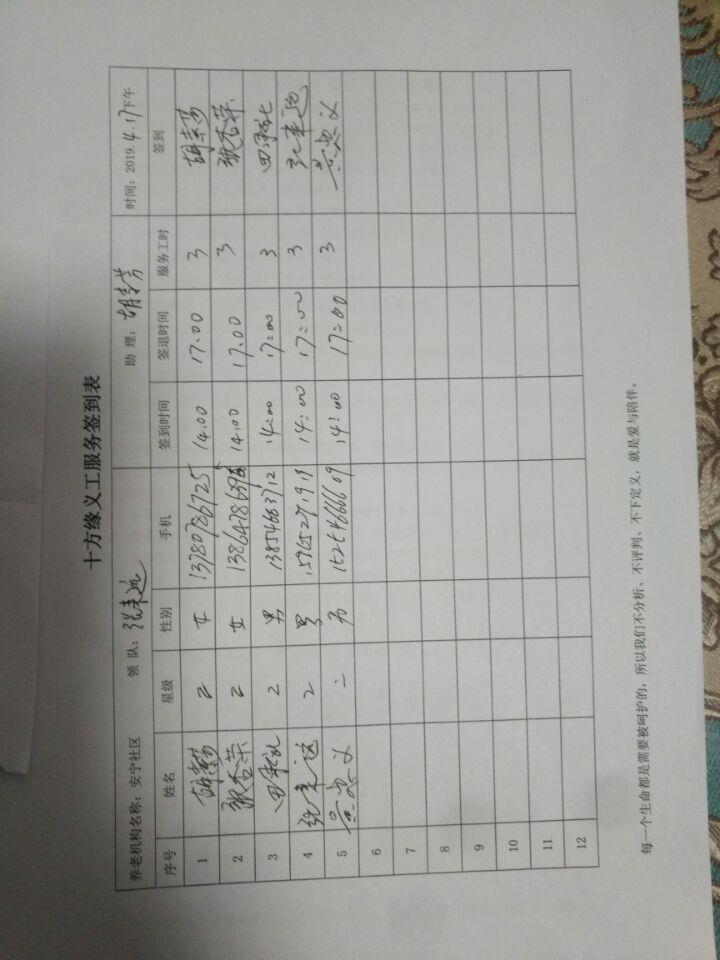 十方缘义工服务签到表
养老机构名称：安宁社区 领 队：张来远 助 理：胡素芳 时间：2019.4.17下午
序号 姓名 星级 性别 手机 签到时间 签退时间 服务工时 签到
1 2 女 13780786725 14.00 17.00 3
2 张杏荣 2 女 14.00 17.00 3 张杏荣
3 2 男 13854663712 14:00 17:00 3
4 张来远 2 男 14:00 17:00 3 张来远
5 二 男 15254666609 14:00 17:00 3
6
7
8
9
10
11
12
每一个生命都是需要被呵护的，所以我们不分析、不评判、不下定义，就是爱与陪伴。